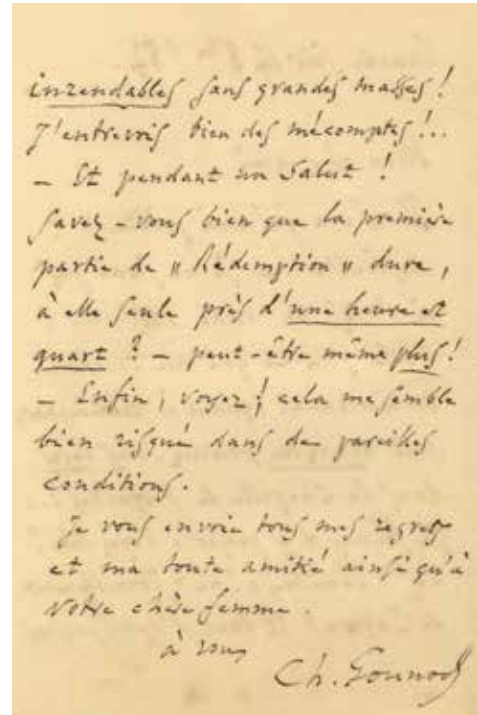 inrendables sans grandes masses !
J'entrevois bien des mécomptes !..
— Et pendant un Salut !
Savez-vous bien que la première
partie de „ Rédemption „ dure,
à elle seule près d'une heure et
quart ? — peut-être même plus !
— Enfin, voyez ! cela me semble
bien risqué dans de pareilles
conditions.
Je vous envoie tous mes regrets
et ma toute amitié ainsi qu'à
votre chère femme.
à vous
Ch. Gounod